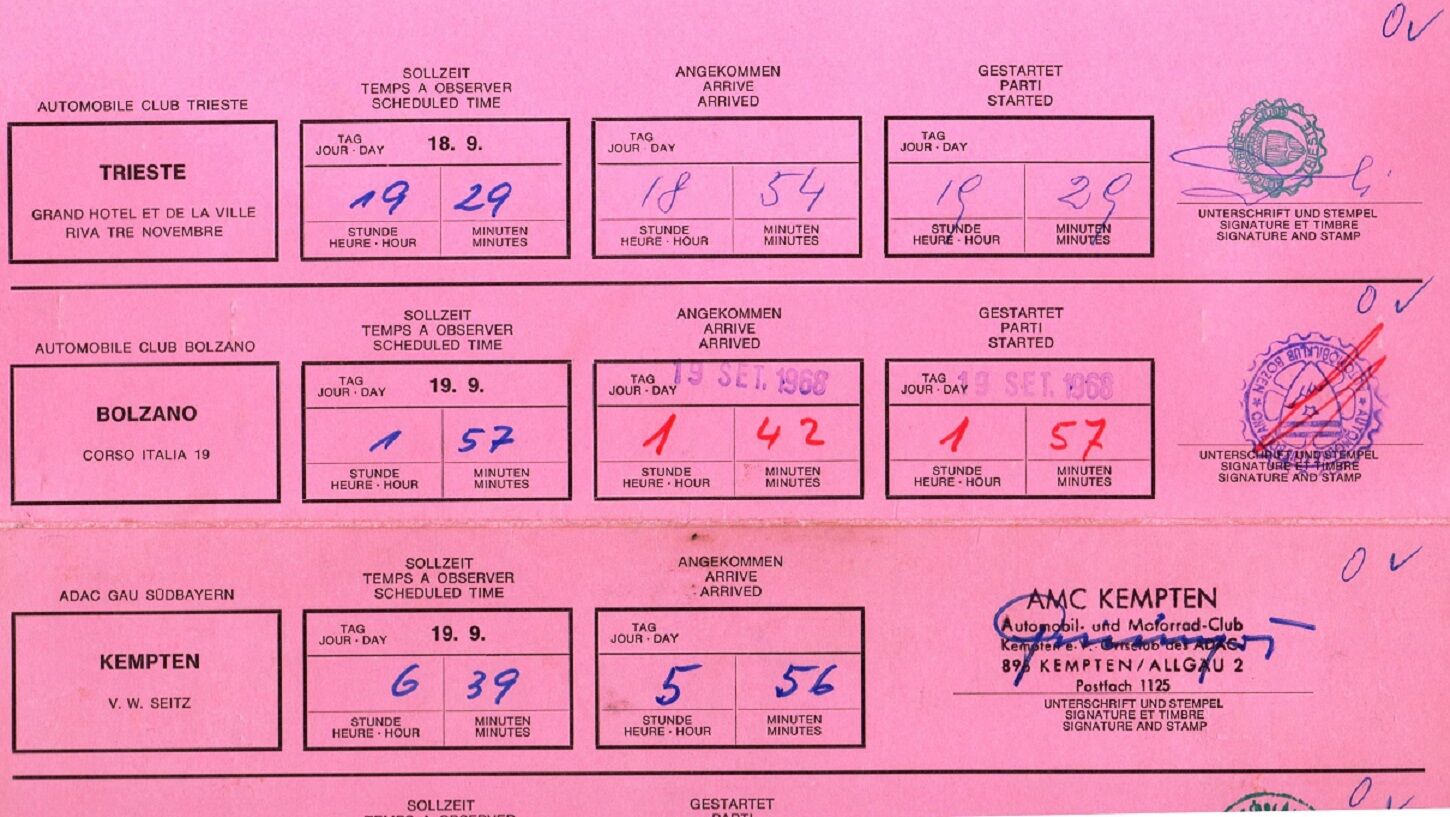 0 ✓
AUTOMOBILE CLUB TRIESTE
TRIESTE
GRAND HOTEL ET DE LA VILLE
RIVA TRE NOVEMBRE
SOLLZEIT
TEMPS A OBSERVER
SCHEDULED TIME
TAG
JOUR · DAY
18. 9.
19 29
STUNDE MINUTEN
HEURE · HOUR MINUTES
ANGEKOMMEN
ARRIVE
ARRIVED
TAG
JOUR · DAY
18 54
STUNDE MINUTEN
HEURE · HOUR MINUTES
GESTARTET
PARTI
STARTED
TAG
JOUR · DAY
19 29
STUNDE MINUTEN
HEURE · HOUR MINUTES
TRIESTE
UNTERSCHRIFT UND STEMPEL
SIGNATURE ET TIMBRE
SIGNATURE AND STAMP
0 ✓
AUTOMOBILE CLUB BOLZANO
BOLZANO
CORSO ITALIA 19
SOLLZEIT
TEMPS A OBSERVER
SCHEDULED TIME
TAG
JOUR · DAY
19. 9.
1 57
STUNDE MINUTEN
HEURE · HOUR MINUTES
ANGEKOMMEN
ARRIVE
ARRIVED
TAG
JOUR · DAY
19 SET. 1968
1 42
STUNDE MINUTEN
HEURE · HOUR MINUTES
GESTARTET
PARTI
STARTED
TAG
JOUR · DAY
19 SET. 1968
1 57
STUNDE MINUTEN
HEURE · HOUR MINUTES
BOZEN
UNTERSCHRIFT UND STEMPEL
SIGNATURE ET TIMBRE
SIGNATURE AND STAMP
0 ✓
ADAC GAU SÜDBAYERN
KEMPTEN
V. W. SEITZ
SOLLZEIT
TEMPS A OBSERVER
SCHEDULED TIME
TAG
JOUR · DAY
19. 9.
6 39
STUNDE MINUTEN
HEURE · HOUR MINUTES
ANGEKOMMEN
ARRIVE
ARRIVED
TAG
JOUR · DAY
5 56
STUNDE MINUTEN
HEURE · HOUR MINUTES
AMC KEMPTEN
Automobil- und Motorrad-Club
Kempten e. V. Ortsclub des ADAC
896 KEMPTEN/ALLGÄU 2
Postfach 1125
UNTERSCHRIFT UND STEMPEL
SIGNATURE ET TIMBRE
SIGNATURE AND STAMP
0 ✓
SOLLZEIT
TEMPS A OBSERVER
GESTARTET
PARTI